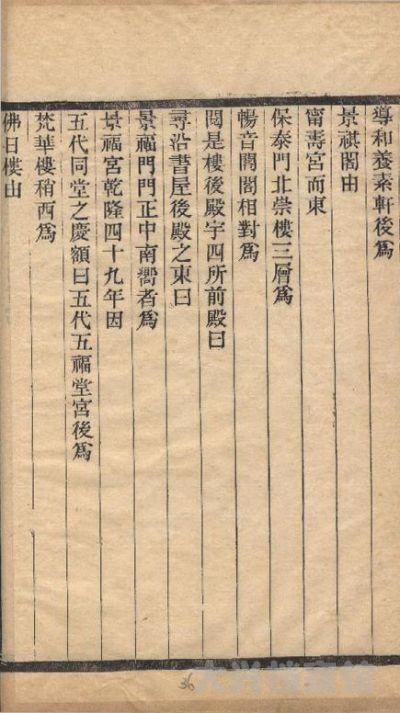 導和養素軒後爲
景祺閣由
甯壽宮而東
保泰門北崇樓三層爲
暢音閣閣相對爲
閱是樓後殿宇四所前殿曰
尋沿書屋後殿之東曰
景福門門正中南嚮者爲
景福宮乾隆四十九年因
五代同堂之慶額曰五代五福堂宮後爲
梵華樓稍西爲
佛日樓由
36